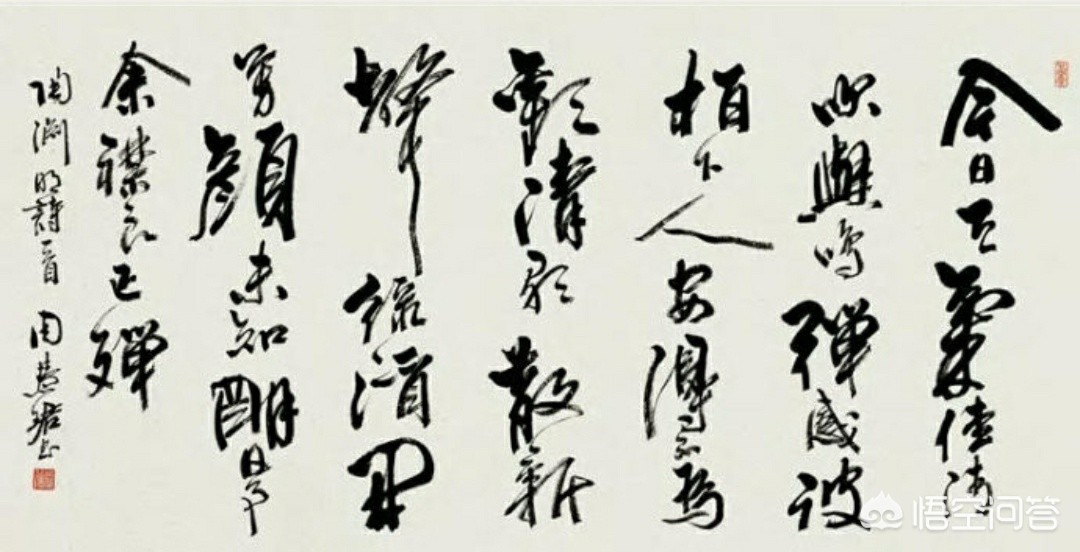 今日天氣佳清
吹與鳴彈感彼
柏下人安得不為
歡清歌散新
聲綠酒開
芳顏未知明日事
余襟良已殫
陶淵明詩一首 周慧珺书
悟空问答